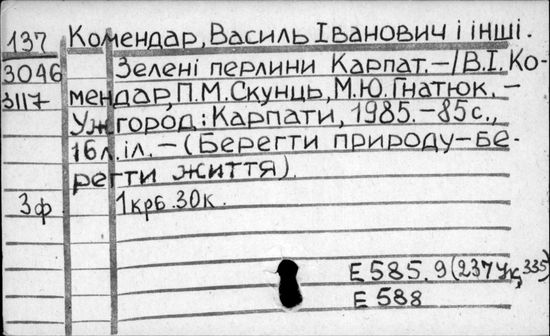 137 Комендар, Василь Іванович і інші.
3046 Зелені перлини Карпат.–/В.І. Ко-
3117 мендар, П.М. Скунць, М.Ю. Гнатюк.–
Ужгород: Карпати, 1985.–85с.,
16л.іл.–(Берегти природу–бе-
регти життя).
3ф 1крб.30к.
Е585.9(237Ук,335)
Е588